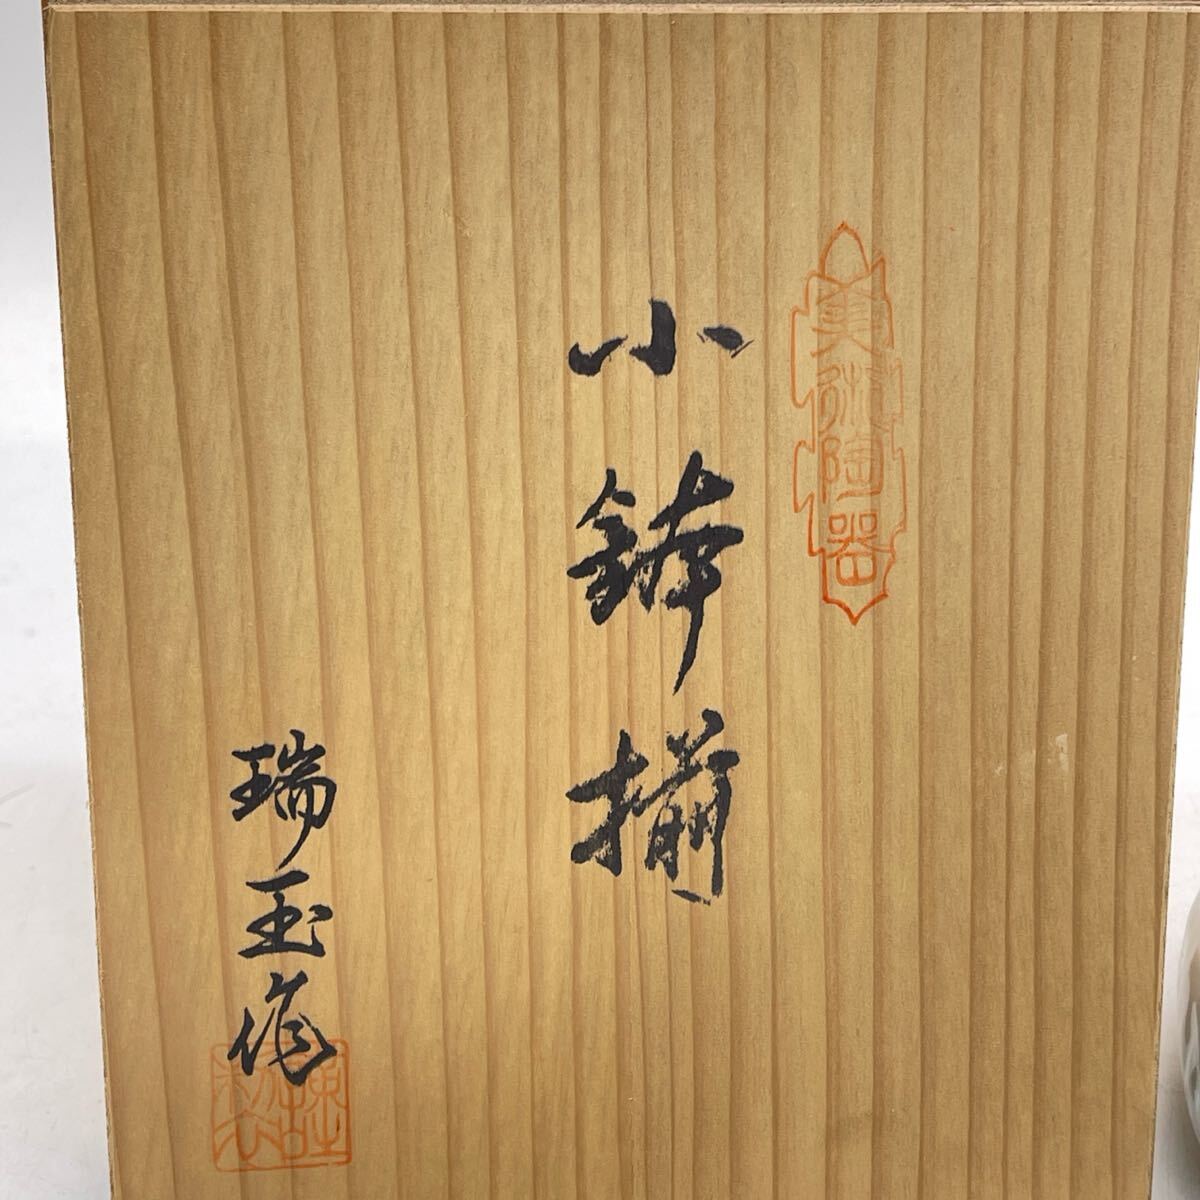 美術陶器
小鉢揃
瑞玉作